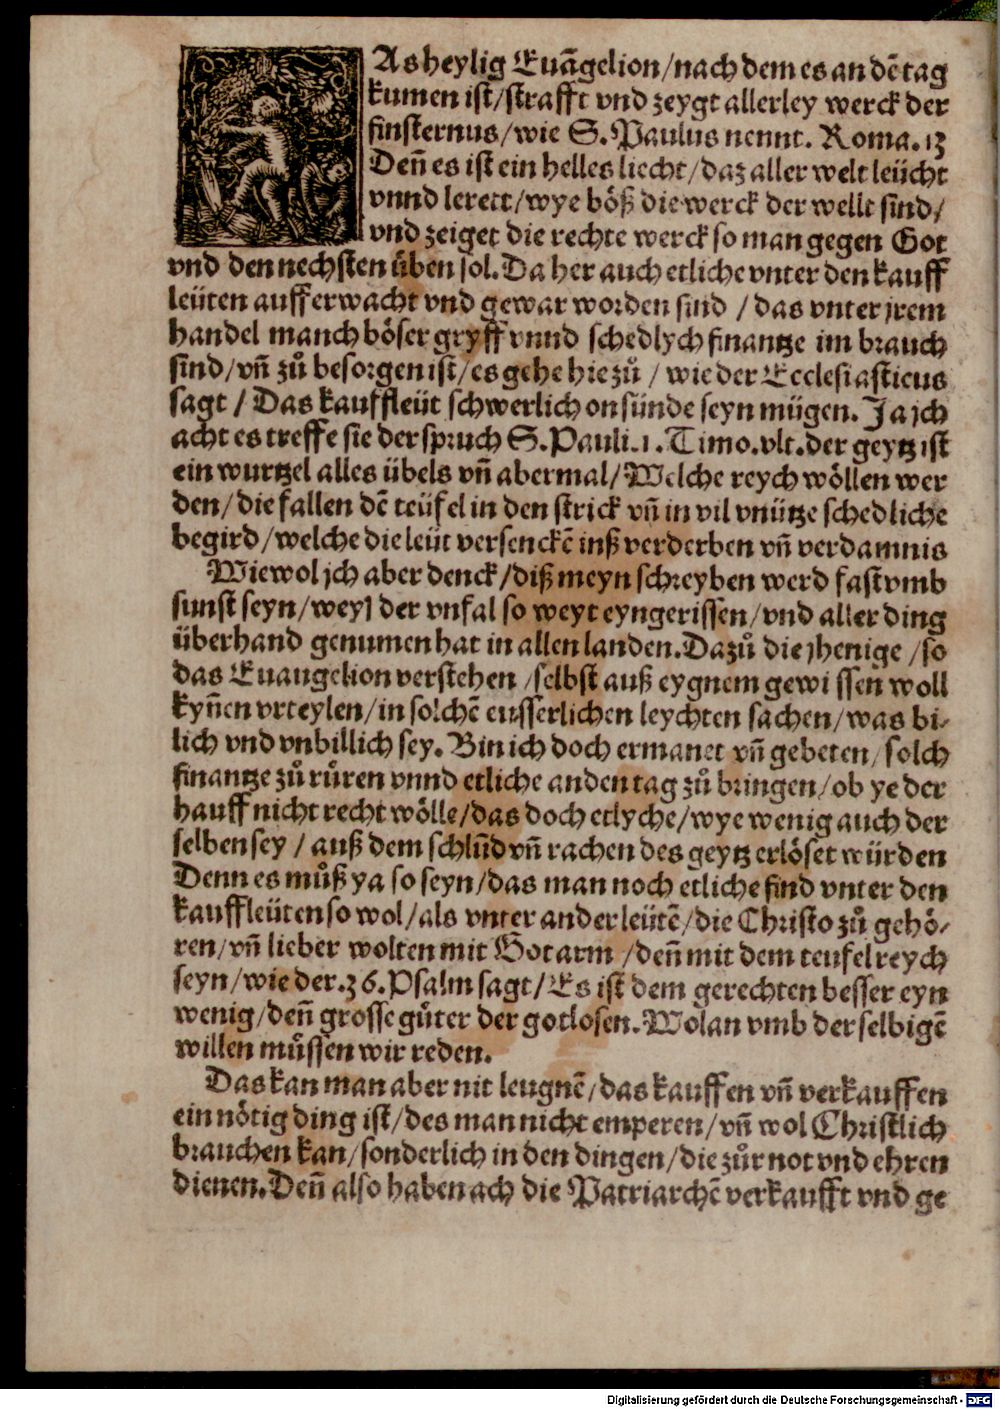 DAs heylig Euãgelion/nach dem es an dẽ tag
kumen ist/strafft vnd zeygt allerley werck der
finsternus/wie S. Paulus nennt. Roma. 13
Den̄ es ist ein helles liecht/daz aller welt leücht
vnnd lerett/wye böß die werck der wellt sind/
vnd zeiget die rechte werck so man gegen Got
vnd den nechsten üben sol. Da her auch etliche vnter den kauff
leüten auff erwacht vnd gewar worden sind / das vnter jrem
handel manch böser gryff vnnd schedlych finantze im brauch
sind/vn̄ zů besorgen ist/es gehe hie zů / wie der Ecclesiasticus
sagt / Das kauffleüt schwerlich on sünde seyn mügen. Ja jch
acht es treffe sie der spruch S. Pauli. 1. Timo. vlt. der geytz ist
ein wurtzel alles übels vn̄ abermal/Welche reych wöllen wer
den/die fallen dẽ teüfel in den strick vn̄ in vil vnütze schedliche
begird/welche die leüt versenckẽ inß verderben vn̄ verdamnis
Wiewol jch aber denck/diß meyn schreyben werd fast vmb
sunst seyn/weyl der vnfal so weyt eyngerissen/vnd aller ding
überhand genumen hat in allen landen. Dazů die jhenige /so
das Euangelion verstehen /selbst auß eygnem gewi ssen woll
kyn̄en vrteylen/in solchẽ eusserlichen leychten sachen/was bi-
lich vnd vnbillich sey. Bin ich doch ermanet vn̄ gebeten/solch
finantze zů růren vnnd etliche an den tag zů bringen/ob ye der
hauff nicht recht wölle/das doch etlyche/wye wenig auch der
selben sey / auß dem schlūd vn̄ rachen des geytz erlöset würden
Denn es můß ya so seyn/das man noch etliche find vnter den
kauffleüten so wol/als vnter ander leütẽ/die Christo zů gehö-
ren/vn̄ lieber wolten mit Got arm /den̄ mit dem teufel reych
seyn/wie der. 36. Psalm sagt/Es ist dem gerechten besser eyn
wenig/den̄ grosse gůter der gotlosen. Wolan vmb der selbigẽ
willen müssen wir reden.
Das kan man aber nit leugnẽ/das kauffen vn̄ verkauffen
ein nötig ding ist/des man nicht emperen/vn̄ wol Christlich
brauchen kan/sonderlich in den dingen/die zůr not vnd ehren
dienen. Den̄ also haben ach die Patriarchẽ verkaufft vnd ge
Digitalisierung gefördert durch die Deutsche Forschungsgemeinschaft - DFG